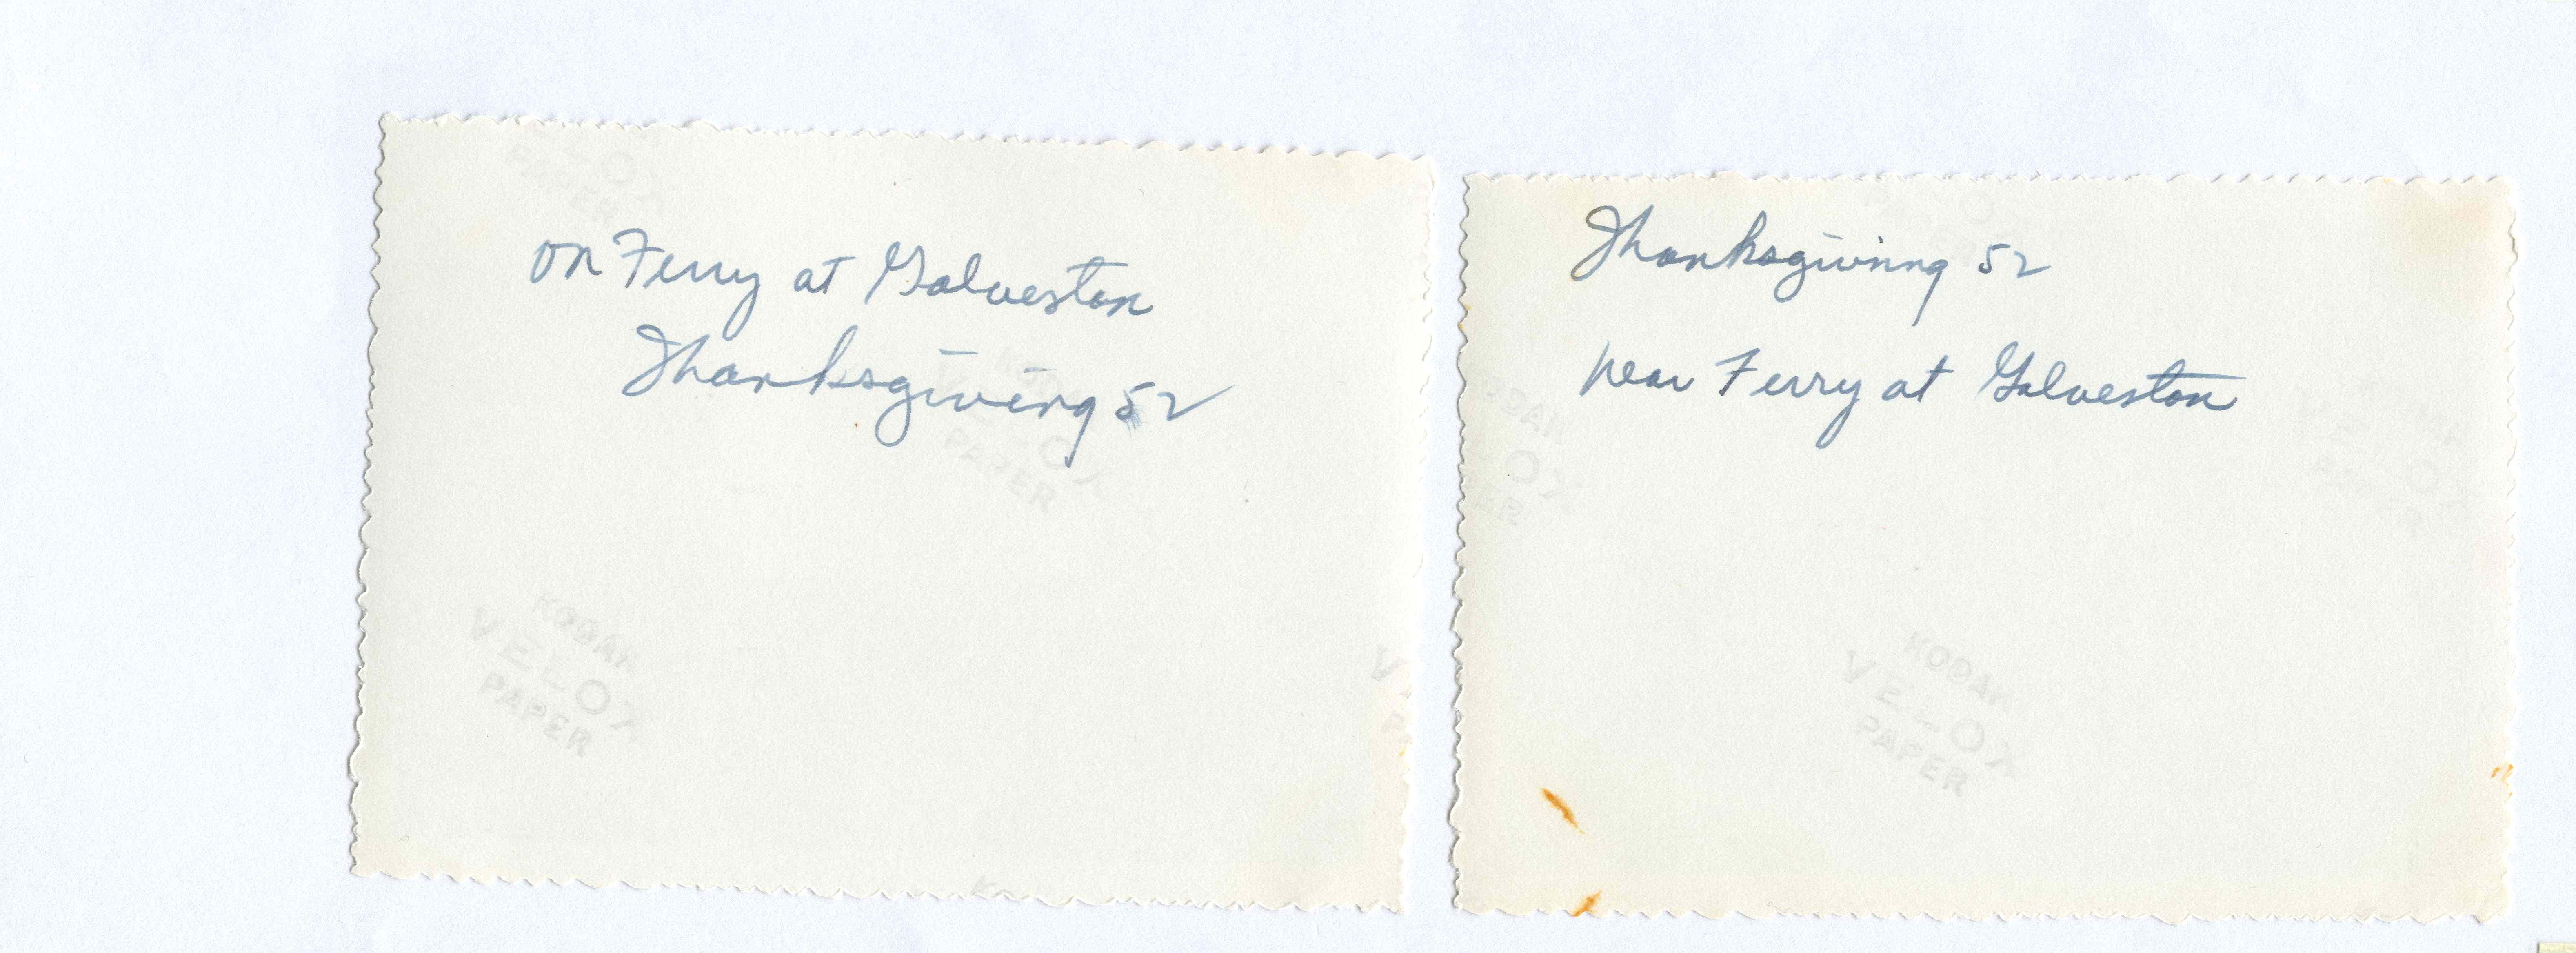 On Ferry at Galveston
Thanksgiving 52
KODAK
VELOX
PAPER
KODAK
VELOX
PAPER
Thanksgiving 52
Near Ferry at Galveston
KODAK
VELOX
PAPER
KODAK
VELOX
PAPER